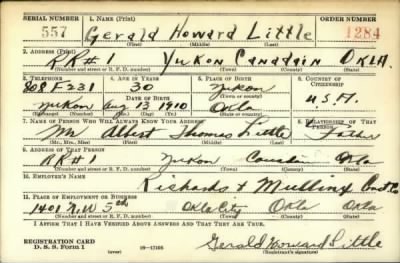 SERIAL NUMBER 1. NAME (Print) ORDER NUMBER
557 Gerald Howard Little 1284
(First) (Middle) (Last)
2. ADDRESS (Print)
RR#1 Yukon Canadain OKLA.
(Number and street or R. F. D. number) (Town) (County) (State)
3. TELEPHONE 4. AGE IN YEARS 5. PLACE OF BIRTH 6. COUNTRY OF CITIZENSHIP
808 F231 30 Yukon
DATE OF BIRTH (Town or county)
Yukon Aug 13 1910 Okla U.S.A.
(Exchange) (Number) (Mo.) (Day) (Yr.) (State or country)
7. NAME OF PERSON WHO WILL ALWAYS KNOW YOUR ADDRESS 8. RELATIONSHIP OF THAT PERSON
Mr Albert Thomas Little Father
(Mr., Mrs., Miss) (First) (Middle) (Last)
9. ADDRESS OF THAT PERSON
RR#1 Yukon Okla
(Number and street or R. F. D. number) (Town) (County) (State)
10. EMPLOYER'S NAME
Richards + Mullinx
11. PLACE OF EMPLOYMENT OR BUSINESS
1401 N.W 5th Okla City Okla Okla
(Number and street or R. F. D. number) (Town) (County) (State)
I AFFIRM THAT I HAVE VERIFIED ABOVE ANSWERS AND THAT THEY ARE TRUE.
REGISTRATION CARD
D. S. S. Form 1 16-17105 Gerald Howard Little
(Registrant's signature)